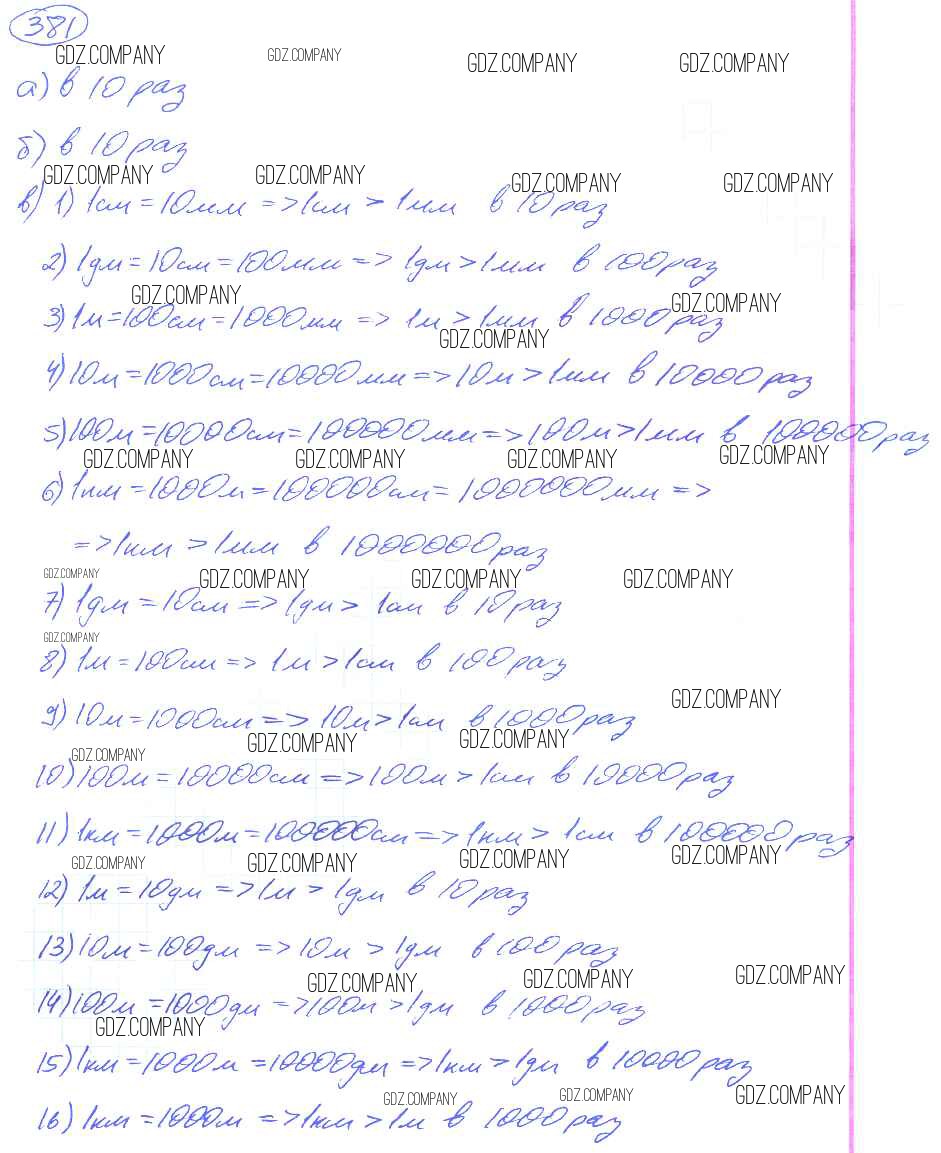 381
GDZ.COMPANY GDZ.COMPANY GDZ.COMPANY GDZ.COMPANY
а) в 10 раз
б) в 10 раз
GDZ.COMPANY GDZ.COMPANY GDZ.COMPANY GDZ.COMPANY
в) 1) 1см = 10мм => 1см > 1мм в 10 раз
2) 1дм = 10см = 100мм => 1дм > 1мм в 100 раз
GDZ.COMPANY GDZ.COMPANY
3) 1м = 100см = 1000мм => 1м > 1мм в 1000 раз
GDZ.COMPANY
4) 10м = 1000см = 10000мм => 10м > 1мм в 10000 раз
5) 100м = 10000см = 100000мм => 100м > 1мм в 100000 раз
GDZ.COMPANY GDZ.COMPANY GDZ.COMPANY GDZ.COMPANY
6) 1км = 1000м = 100000см = 1000000мм =>
=> 1км > 1мм в 1000000 раз
GDZ.COMPANY GDZ.COMPANY GDZ.COMPANY GDZ.COMPANY
7) 1дм = 10см => 1дм > 1см в 10 раз
GDZ.COMPANY
8) 1м = 100см => 1м > 1см в 100 раз
GDZ.COMPANY
9) 10м = 1000см => 10м > 1см в 1000 раз
GDZ.COMPANY GDZ.COMPANY GDZ.COMPANY
10) 100м = 10000см => 100м > 1см в 10000 раз
11) 1км = 1000м = 100000см => 1км > 1см в 100000 раз
GDZ.COMPANY GDZ.COMPANY GDZ.COMPANY GDZ.COMPANY
12) 1м = 10дм => 1м > 1дм в 10 раз
13) 10м = 100дм => 10м > 1дм в 100 раз
GDZ.COMPANY GDZ.COMPANY GDZ.COMPANY
14) 100м = 1000дм => 100м > 1дм в 1000 раз
GDZ.COMPANY
15) 1км = 1000м = 10000дм => 1км > 1дм в 10000 раз
GDZ.COMPANY GDZ.COMPANY GDZ.COMPANY
16) 1км = 1000м => 1км > 1м в 1000 раз